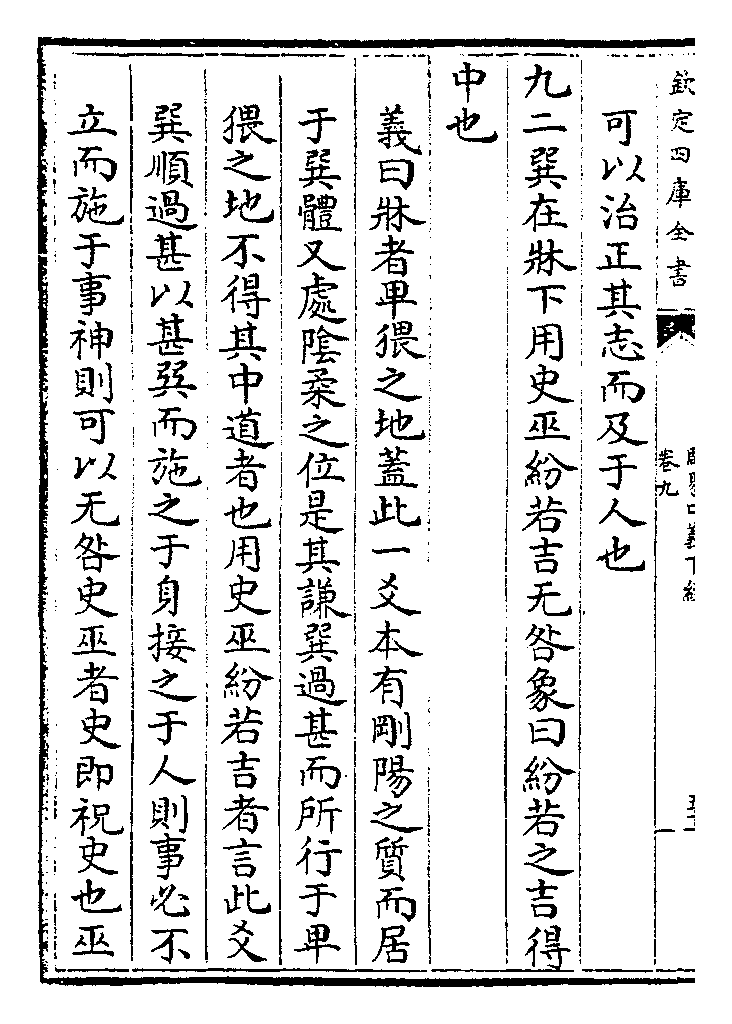 欽定四庫全書
卷九
可以治正其志而及于人也
九二巽在牀下用史巫紛若吉无咎象曰紛若之吉得
中也
義曰牀者卑猥之地蓋此一爻本有剛陽之質而居
于巽體又處陰柔之位是其謙巽過甚而所行于卑
猥之地不得其中道者也用史巫紛若吉者言此爻
巽順過甚以甚巽而施之于身接之于人則事必不
立而施于事神則可以无咎史巫者史即祝史也巫